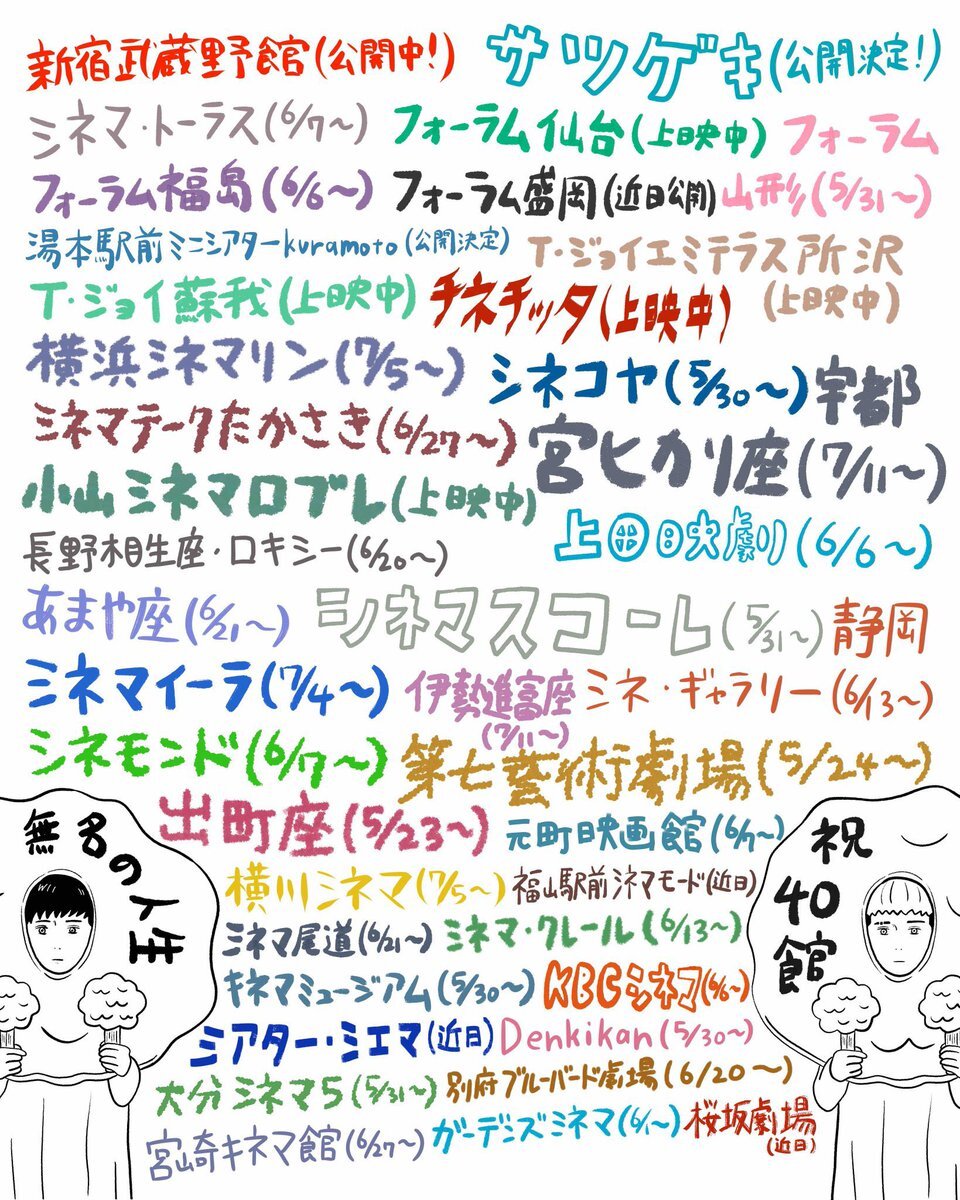 新宿武蔵野館(公開中!)
サツゲキ(公開決定!)
シネマ・トーラス(6/7〜)
フォーラム仙台(上映中)
フォーラム
山形(5/31〜)
フォーラム福島(6/6〜)
フォーラム盛岡(近日公開)
湯本駅前ミニシアターkuramoto(公開決定)
T・ジョイエミテラス所沢
(上映中)
T・ジョイ蘇我(上映中)
チネチッタ(上映中)
横浜シネマリン(7/5〜)
シネコヤ(5/30〜)
宇都
宮ヒカリ座(7/11〜)
シネマテークたかさき(6/27〜)
小山シネマロブレ(上映中)
上田映劇(6/6〜)
長野相生座・ロキシー(6/20〜)
あまや座(6/21〜)
シネマスコーレ(5/31〜)
静岡
シネ・ギャラリー(6/13〜)
シネマイーラ(7/4〜)
伊勢進富座
(7/11〜)
シネモンド(6/7〜)
第七藝術劇場(5/24〜)
出町座(5/23〜)
元町映画館(6/7〜)
横川シネマ(7/5〜)
福山駅前シネマモード(近日)
シネマ尾道(6/21〜)
シネマ・クレール(6/13〜)
キネマミュージアム(5/30〜)
KBCシネマ(6/6〜)
シアター・シエマ(近日)
Denkikan(5/30〜)
大分シネマ5(5/31〜)
別府ブルーバード劇場(6/20〜)
宮崎キネマ館(6/27〜)
ガーデンズシネマ(6/1〜)
桜坂劇場
(近日)
無名の人生
祝
40
館